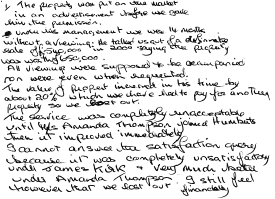 The property was put on the market
in an advertisement before we gave
him the permission.
Under his management it was 14 months
without advertising. He talked us out of a definite
sale of £540,000 in 2002 saying the property
was worth £650,000.
All viewings were supposed to be accompanied
non were even when requested.
The value of property increased in this time by
about 20% which we have had to pay for another
property so we lost out.
The service was completely unacceptable
until Ms Amanda Thompson joined Humberts
then it improved immediately
I cannot answer the satisfaction query
because it was completely unsatisfactory
under James Kirk & very much better
under Amanda Thompson. I still feel
however that we lost out financially